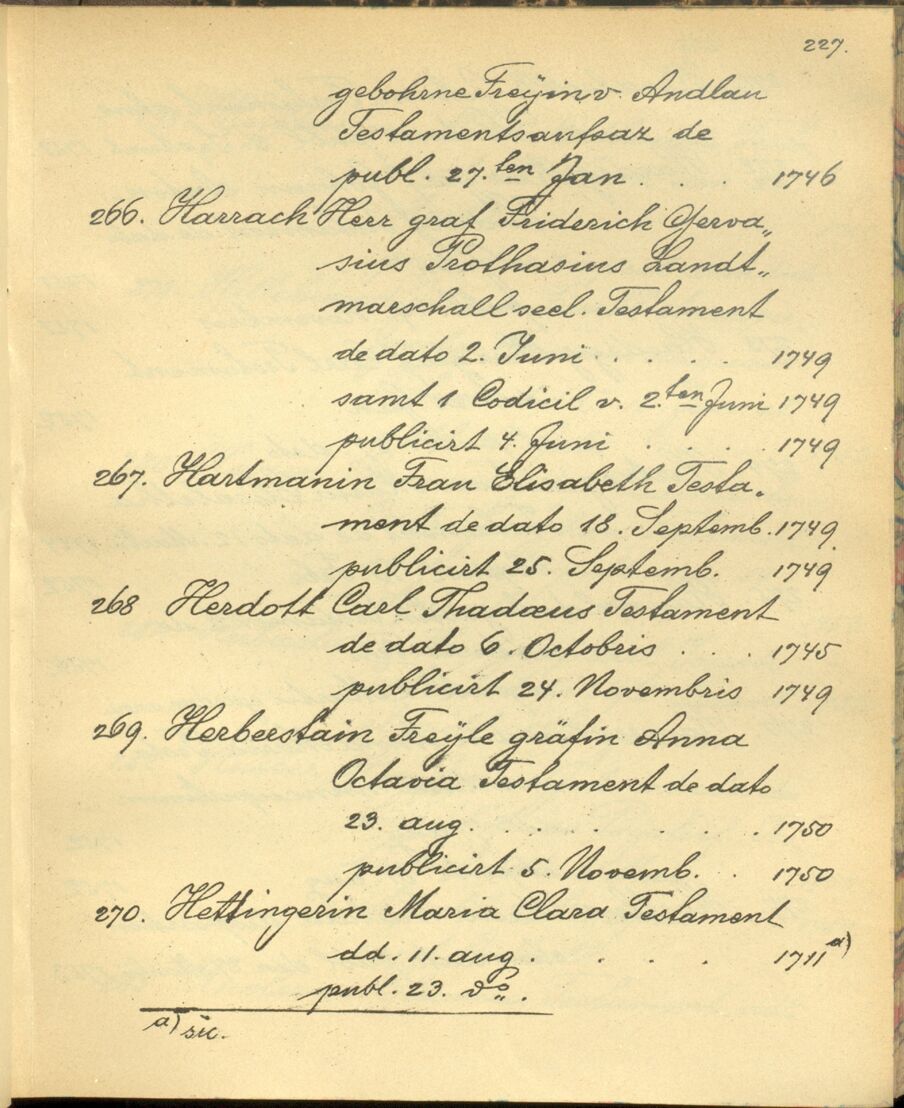 227.
gebohrne Freÿin v. Andlau
Testamentsaufsaz de
publ. 27.ten Jan . . . 1746
266. Harrach Herr graf Friderich Gerva„
sius Prothasius Landt„
marschall seel. Testament
de dato 2. Juni . . . . . 1749
samt 1 Codicil v. 2.ten Juni 1749
publicirt 4. Juni . . . . 1749
267. Hartmanin Frau Elisabeth Testa„
ment de dato 18. Septemb. 1749
publicirt 25. Septemb. 1749
268 Herdott Carl Thadæus Testament
de dato 6. Octobris . . . 1745
publicirt 24. Novembris 1749
269. Herberstain Freÿle gräfin Anna
Octavia Testament de dato
23. aug. . . . . . . . 1750
publicirt 5. Novemb. . 1750
270. Hettingerin Maria Clara Testament
dd. 11. aug . . . . . 1711 a)
publ. 23. do.
a) sic.